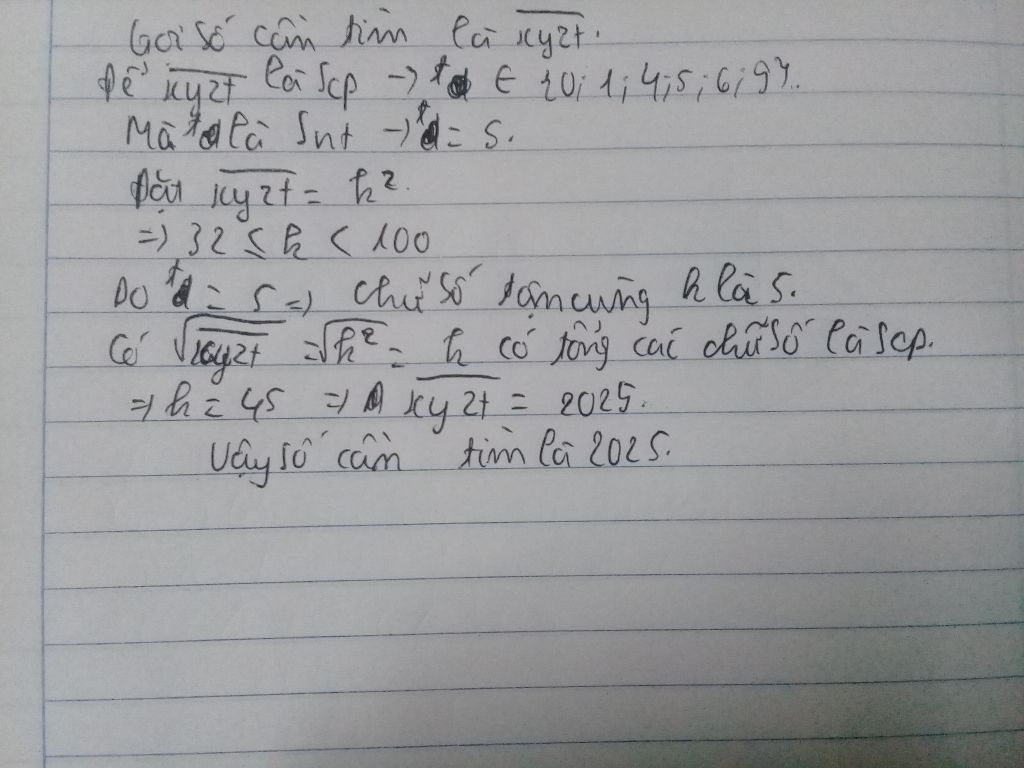 Gọi số cần tìm là xyzt.
Để xyzt là scp → t ∈ {0; 1; 4; 5; 6; 9}.
Mà t là snt → t = 5.
Đặt xyzt = k².
=> 32 ≤ k < 100
Do t = 5 => chữ số tận cùng k là 5.
Có √xyzt = √k² = k có tổng các chữ số là scp.
=> k = 45 => xyzt = 2025.
Vậy số cần tìm là 2025.